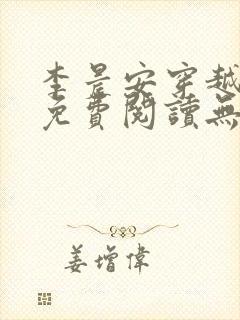 李晨安穿越
免費閱讀無
姜增偉